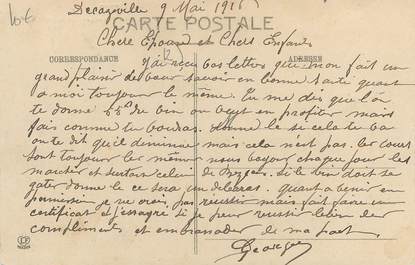 10-E
Decazeville 9 Mai 1916
CARTE POSTALE
Chere Epouse et Chers Enfants
CORRESPONDANCE
ADRESSE
J'ai reçu vos lettres qui mon fait un
grand plaisir de vous savoir en bonne santé quant
a moi toujours le même. Tu me dis que l'on
te donne 55 du vin on peut en profiter mais
fais comme tu voudras. donne le si cela te va
on te dit qu'il diminue mais cela n'est pas. les cours
sont toujours les mêmes nous voyons chaque jour les
marchés et surtout celui de Beziers. si le vin doit se
gater donne le ce sera un debaras. quant a venir en
permission je ne crois pas reussir mais fait faire un
certificat et j'essayré si je peux reussir bien des
compliments et embrassades de ma part.
Georges